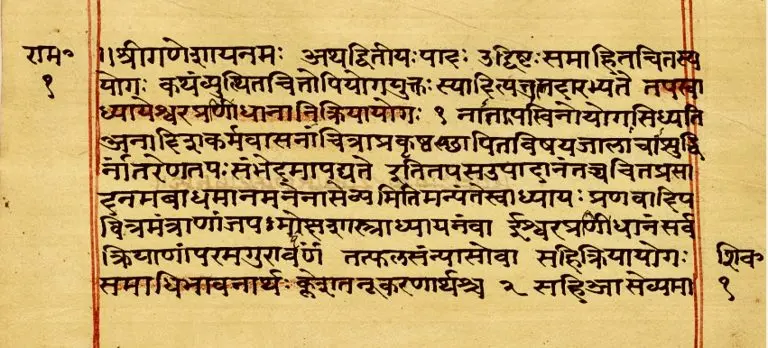 राम॰
१
॥श्रीगणेशायनमः अथद्वितीयःपादः उद्दिष्टःसमाहितचित्तस्य
योगः कथंव्युत्थितचित्तोपियोगयुक्तःस्यादित्येतदारभ्यते तपःस्वा
ध्यायेश्वरप्रणीधानानिक्रियायोगः १ नातपस्विनोयोगसिध्यति
अनादिक्लेशकर्मवासनाचित्रा विषयजालाचाशुद्धि
र्नांतरेणतपःसंभेदमापद्यते इतितपसउपादानंतच्चचित्तप्रसा
दनमबाधमानमनेनासेव्यमितिमन्यंतेस्वाध्यायः प्रणवादिप
वित्रमंत्राणांजपःमोक्षशास्त्राध्यायनंवा ईश्वरप्रणीधानंसर्व
क्रियाणांपरमगुरावर्पणं तत्फलसंन्यासोवा सहिक्रियायोगः
समाधिभावनार्थः क्लेशतनूकरणार्थश्च २ सहिआसेव्यमा
शिक
१